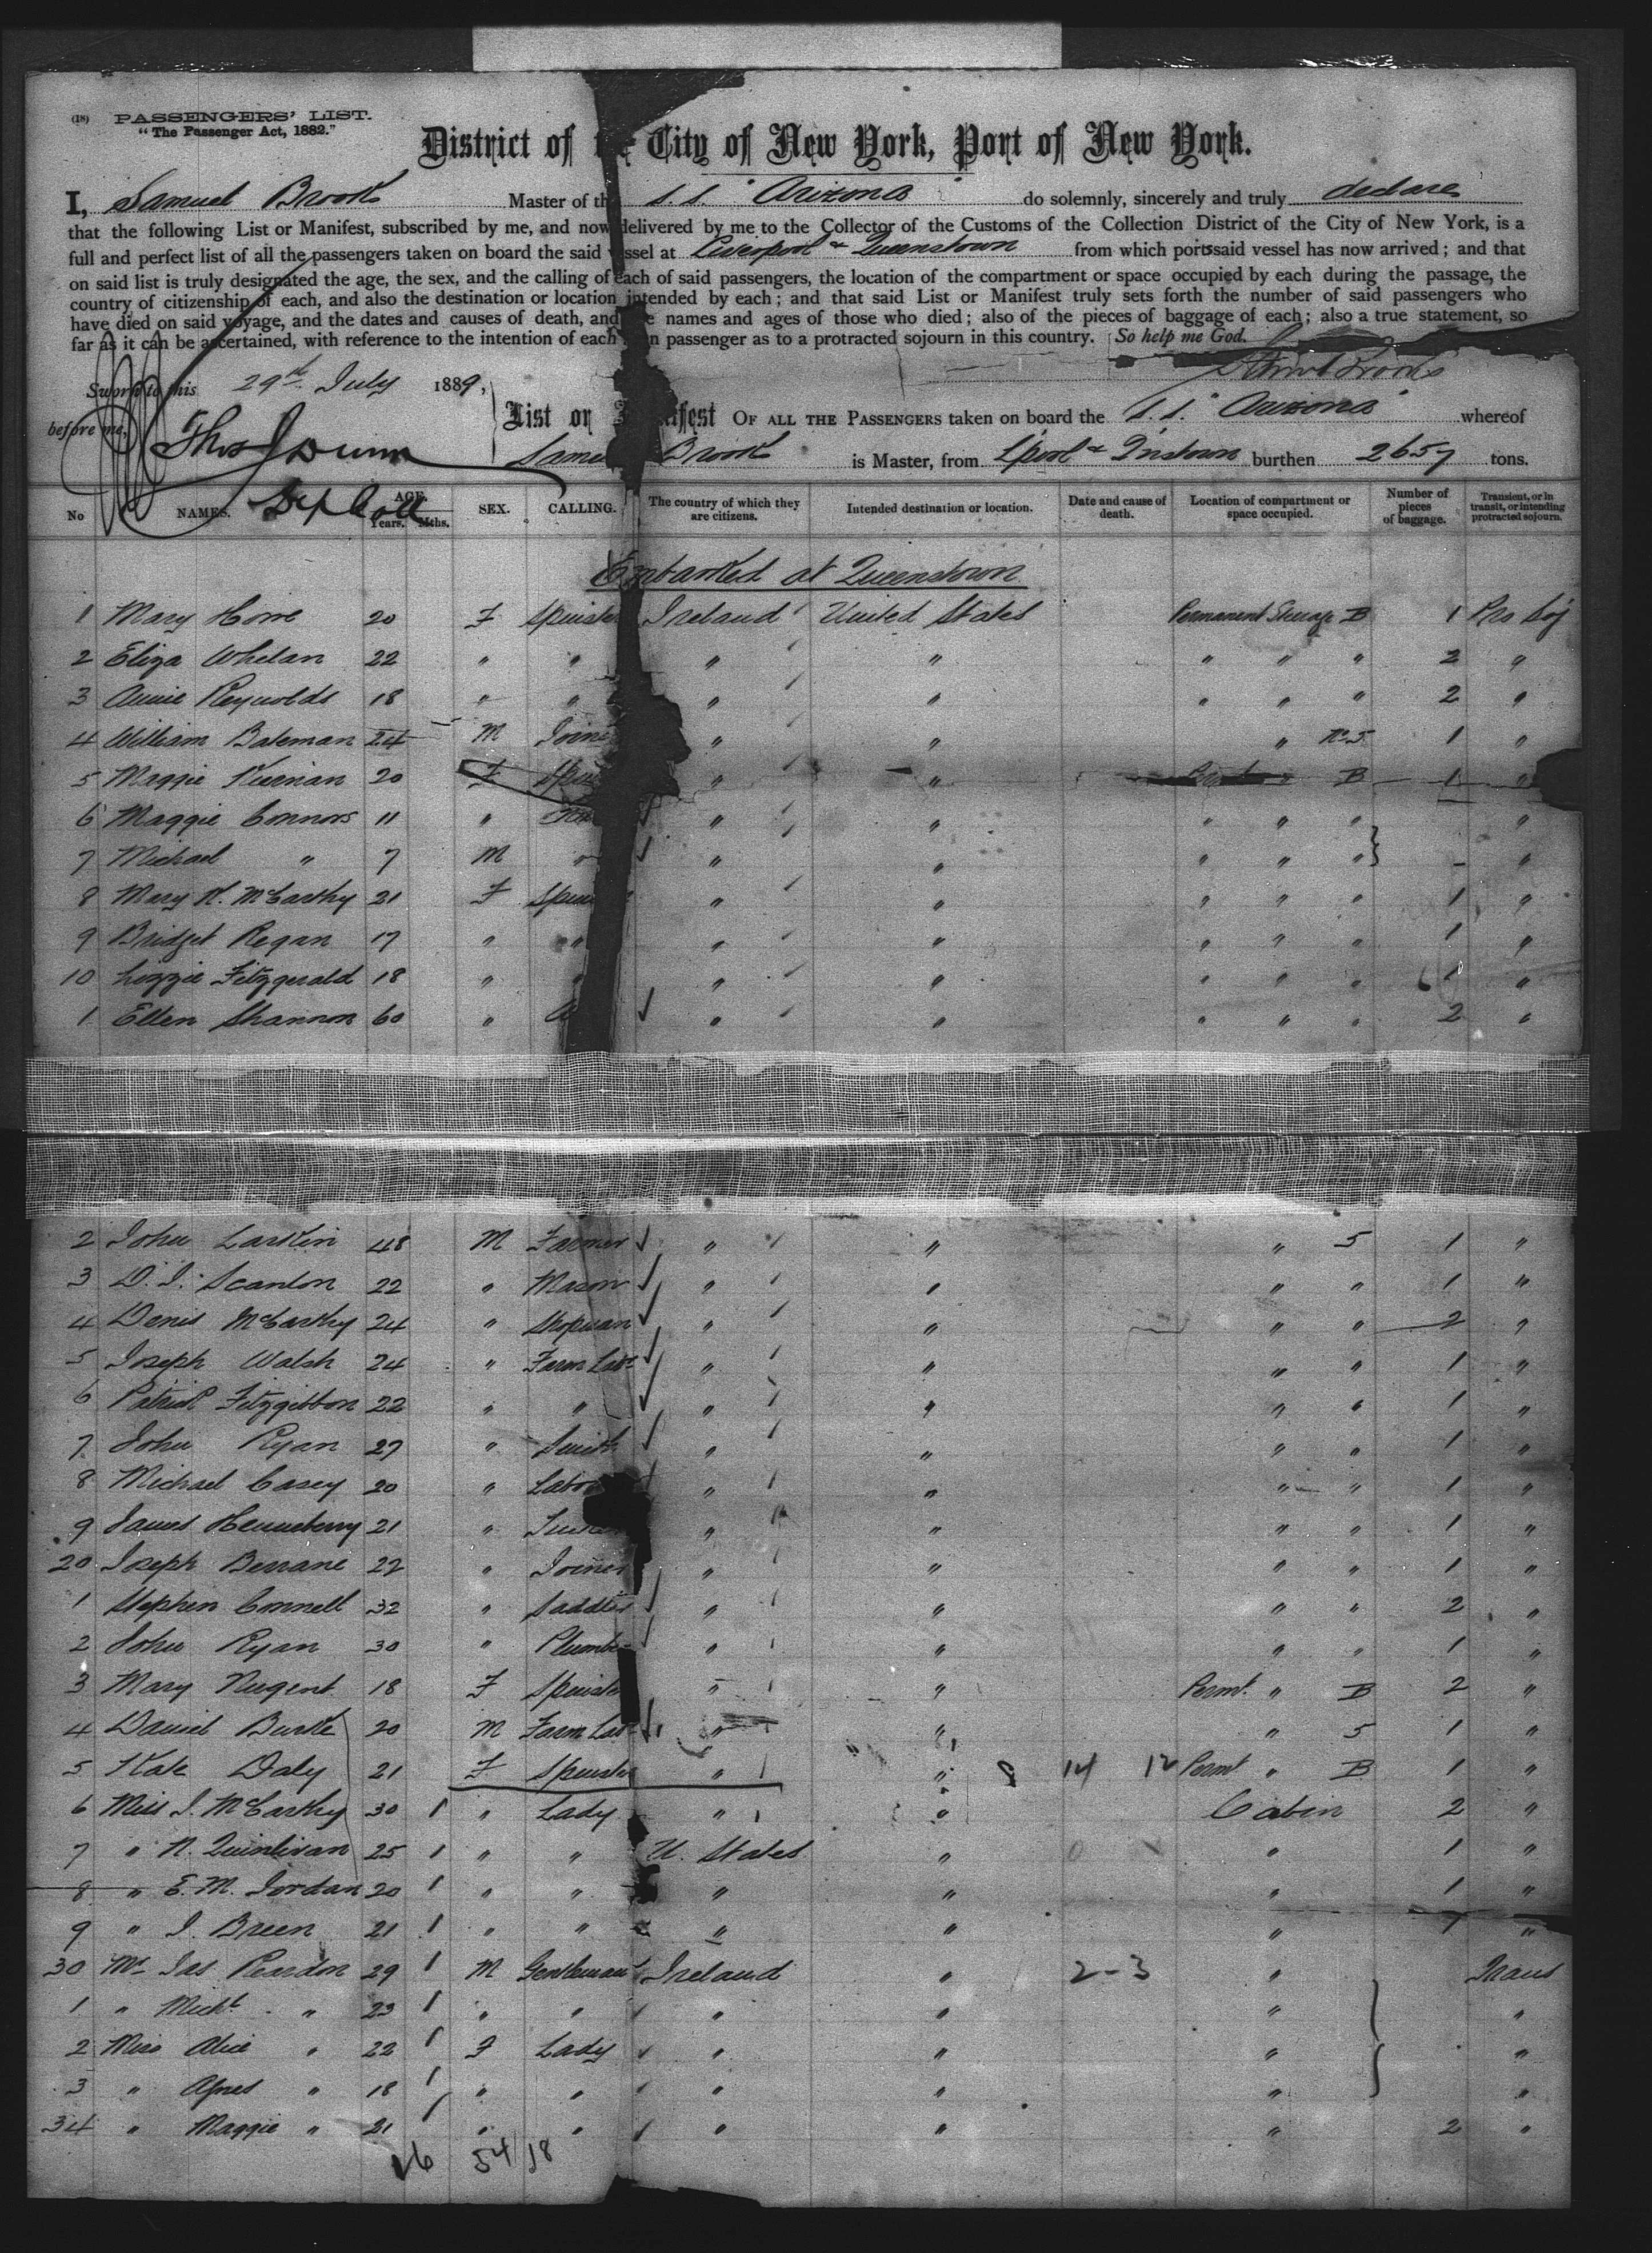 (18) PASSENGERS' LIST.
"The Passenger Act, 1882."
District of the City of New York, Port of New York.
I, Samuel Brooks Master of the S.S. "Arizona" do solemnly, sincerely and truly declare
that the following List or Manifest, subscribed by me, and now delivered by me to the Collector of the Customs of the Collection District of the City of New York, is a
full and perfect list of all the passengers taken on board the said vessel at Liverpool & Queenstown from which ports said vessel has now arrived; and that
on said list is truly designated the age, the sex, and the calling of each of said passengers, the location of the compartment or space occupied by each during the passage, the
country of citizenship of each, and also the destination or location intended by each; and that said List or Manifest truly sets forth the number of said passengers who
have died on said voyage, and the dates and causes of death, and the names and ages of those who died; also of the pieces of baggage of each; also a true statement, so
far as it can be ascertained, with reference to the intention of each such passenger as to a protracted sojourn in this country. So help me God.
Sworn to this 29th July 1889,
before me, Thos J Dunn
Dep Coll
List or Manifest OF ALL THE PASSENGERS taken on board the S.S. "Arizona" whereof
Samuel Brooks is Master, from Lpool & Qnstown burthen 2657 tons.
No NAMES. AGE. Years. Mths. SEX. CALLING. The country of which they are citizens. Intended destination or location. Date and cause of death. Location of compartment or space occupied. Number of pieces of baggage. Transient, or in transit, or intending protracted sojourn.
Embarked at Queenstown
1 Mary Howe 20 F Spinster Ireland United States Permanent Steerage B 1 Pro Soj
2 Eliza Whelan 22 " " " " " " " 2 "
3 Annie Reynolds 18 " " " " " " " 2 "
4 William Bateman 24 M Joiner " " " No 5 1 "
5 Maggie Kiernan 20 F Spin " " " B 1 "
6 Maggie Connors 11 " " " " " " "
7 Michael " 7 M " " " " " " - "
8 Mary K. McCarthy 21 F Spin " " " " " 1 "
9 Bridget Regan 17 " " " " " " " 1 "
10 Lizzie Fitzgerald 18 " " " " " " " 1 "
1 Ellen Shannon 60 " " " " " " 2 "
2 John Larkin 48 M Farmer " " " 5 1 "
3 D. J. Scanlon 22 " Mason " " " " 1 "
4 Denis McCarthy 24 " Shopman " " " " 2 "
5 Joseph Walsh 24 " Farm Labr " " " " 1 "
6 Patrick Fitzgibbon 22 " " " " " " 1 "
7 John Ryan 27 " Smith " " " " 1 "
8 Michael Casey 20 " Labor " " " " 1 "
9 James Henneberry 21 " " " " " 1 "
20 Joseph Berrane 22 " Joiner " " " " 1 "
1 Stephen Connell 32 " Saddler " " " " 2 "
2 John Ryan 30 " Plumber " " " " 1 "
3 Mary Nugent 18 F Spinster " " Permt. " B 2 "
4 Daniel Burke 20 M Farm Lab " " " 5 1 "
5 Kate Daly 21 F Spinster " " 8 14 12 Permt " B 1 "
6 Miss J. McCarthy 30 1 " Lady " " Cabin 2 "
7 " N. Quinlivan 25 1 " " U. States " " 1 "
8 " E. M. Jordan 20 1 " " " " " 1 "
9 " J. Breen 21 1 " " " " " 1 "
30 Mr Jas Reardon 29 1 M Gentleman Ireland " 2-3 " Trans
1 " Michl " 23 1 " " " " " "
2 Miss Alice " 22 1 F Lady " " " "
3 " Agnes " 18 1 " " " " " "
34 " Maggie " 21 1 " " " " " 2 "
54 18